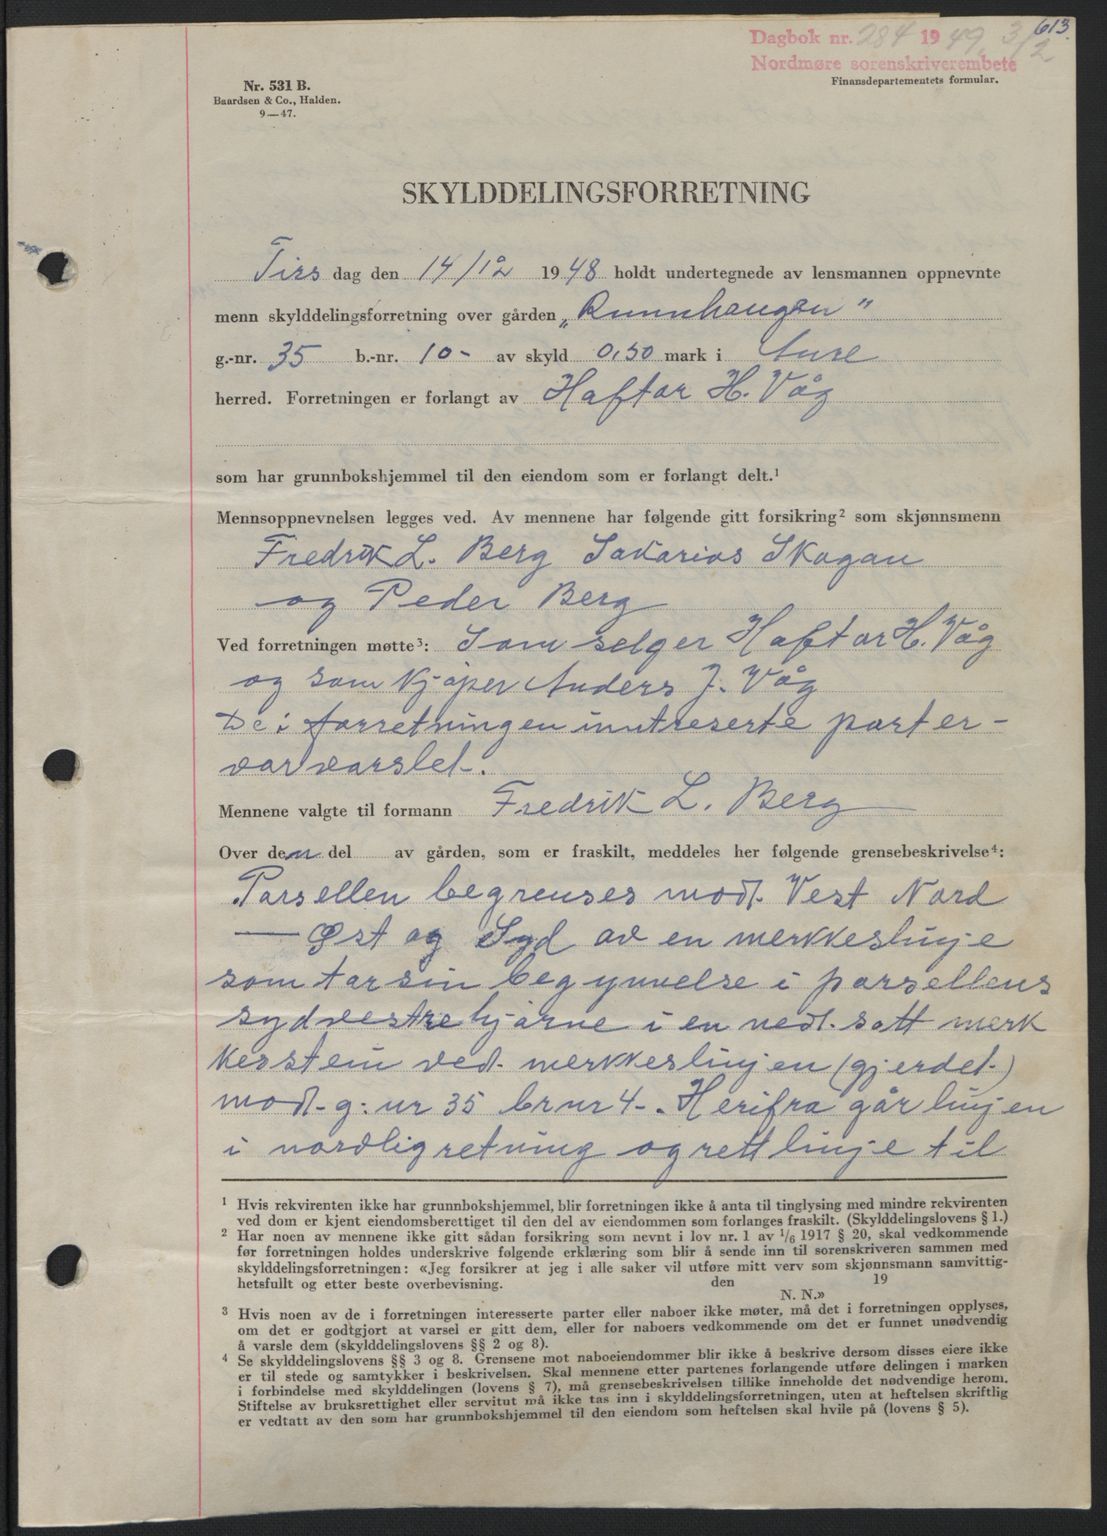 613.
Dagbok nr. 284 1949. 3/2
Nordmøre sorenskriverembete
Finansdepartementets formular.
Nr. 531 B.
Baardsen & Co., Halden.
9—47.
SKYLDDELINGSFORRETNING
Tirs dag den 14/12 1948 holdt undertegnede av lensmannen oppnevnte
menn skylddelingsforretning over gården „Runnhaugen"
g.-nr. 35 b.-nr. 10- av skyld 0,50 mark i Aure
herred. Forretningen er forlangt av Haftor H. Våg
som har grunnbokshjemmel til den eiendom som er forlangt delt.¹
Mennsoppnevnelsen legges ved. Av mennene har følgende gitt forsikring² som skjønnsmenn
Fredrik L. Berg Sakarias Skogan
og Peder Berg
Ved forretningen møtte³: Som selger Haftor H. Våg
og som kjøper Anders J. Våg
De i forretningen inntreserte parter-
var varslet-.
Mennene valgte til formann Fredrik L. Berg
Over den del av gården, som er fraskilt, meddeles her følgende grensebeskrivelse⁴:
Parsellen begrenses mot- Vest Nord
— Øst og Syd av en merkkeslinje
som tar sin begynnelse i parsellens
sydvestre hjørne i en nedt. satt merk
kesstein ved- merkkeslinjen (gjerdet-)
mot- g: nr 35 br nr 4-. Herifra går linjen
i nordlig retning og rett linje til
¹ Hvis rekvirenten ikke har grunnbokshjemmel, blir forretningen ikke å anta til tinglysing med mindre rekvirenten
ved dom er kjent eiendomsberettiget til den del av eiendommen som forlanges fraskilt. (Skylddelingslovens § 1.)
² Har noen av mennene ikke gitt sådan forsikring som nevnt i lov nr. 1 av 1/6 1917 § 20, skal vedkommende
før forretningen holdes underskrive følgende erklæring som blir å sende inn til sorenskriveren sammen med
skylddelingsforretningen: «Jeg forsikrer at jeg i alle saker vil utføre mitt verv som skjønnsmann samvittig-
hetsfullt og etter beste overbevisning. den 19
N. N.»
³ Hvis noen av de i forretningen interesserte parter eller naboer ikke møter, må det i forretningen opplyses,
om det er godtgjort at varsel er gitt dem, eller for naboers vedkommende om det er funnet unødvendig
å varsle dem (skylddelingslovens §§ 2 og 8).
⁴ Se skylddelingslovens §§ 3 og 8. Grensene mot naboeiendommer blir ikke å beskrive dersom disses eiere ikke
er til stede og samtykker i beskrivelsen. Skal mennene etter partenes forlangende utføre delingen i marken
i forbindelse med skylddelingen (lovens § 7), må grensebeskrivelsen tillike inneholde det nødvendige herom.
Stiftelse av bruksrettighet eller servitut må ikke tas inn i skylddelingsforretningen, uten at heftelsen skriftlig
er vedtatt av den som har grunnbokshjemmel til den eiendom som heftelsen skal hvile på (lovens § 5).